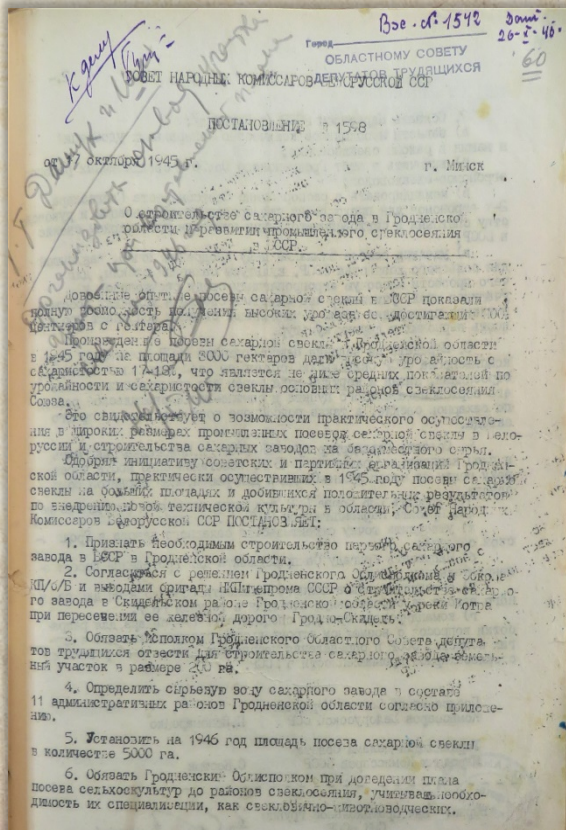 Вхс. № 1542
26-X-45.
60
К делу
Город
ОБЛАСТНОМУ СОВЕТУ
ДЕПУТАТОВ ТРУДЯЩИХСЯ
СОВЕТ НАРОДНЫХ КОМИССАРОВ БЕЛОРУССКОЙ ССР
ПОСТАНОВЛЕНИЕ № 1548
от 17 октября 1945 г. г. Минск
О строительстве сахарного завода в Гродненской
области и развитии промышленного свеклосеяния
в БССР.
Довоенные опытные посевы сахарной свеклы в БССР показали
полную возможность получения высоких урожаев, достигавших
центнеров с гектара.
Произведенные посевы сахарной свеклы в Гродненской области
в 1945 году на площади 3000 гектаров дали урожайность с
сахаристостью 17-18%, что является не ниже средних показателей по
урожайности и сахаристости свеклы основных районов свеклосеяния
Союза.
Это свидетельствует о возможности практического осуществле-
ния в широких размерах промышленных посевов сахарной свеклы в Бело-
руссии и строительства сахарных заводов на базе местного сырья.
Одобряя инициативу советских и партийных организаций Гроднен-
ской области, практически осуществивших в 1945 году посевы сахарной
свеклы на больших площадях и добившихся положительных результатов
по внедрению новой технической культуры в области, Совет Народных
Комиссаров Белорусской ССР ПОСТАНОВЛЯЕТ:
1. Признать необходимым строительство первого сахарного
завода в БССР в Гродненской области.
2. Согласиться с решением Гродненского Облисполкома и Обкома
КП/б/Б и выводами бригады СССР о строительстве сахарно-
го завода в Скидельском районе Гродненской области у реки Котра
при пересечении ее железной дорогой Гродно-Скидель.
3. Обязать исполком Гродненского Областного Совета депута-
тов трудящихся отвести для строительства сахарного завода земель-
ный участок в размере 200 га.
4. Определить сырьевую зону сахарного завода в составе
11 административных районов Гродненской области согласно приложе-
нию.
5. Установить на 1946 год площадь посева сахарной свеклы
в количестве 5000 га.
6. Обязать Гродненский Облисполком при доведении плана
посева сельхозкультур до районов свеклосеяния, учитывать необхо-
димость их специализации, как свекловично-животноводческих.